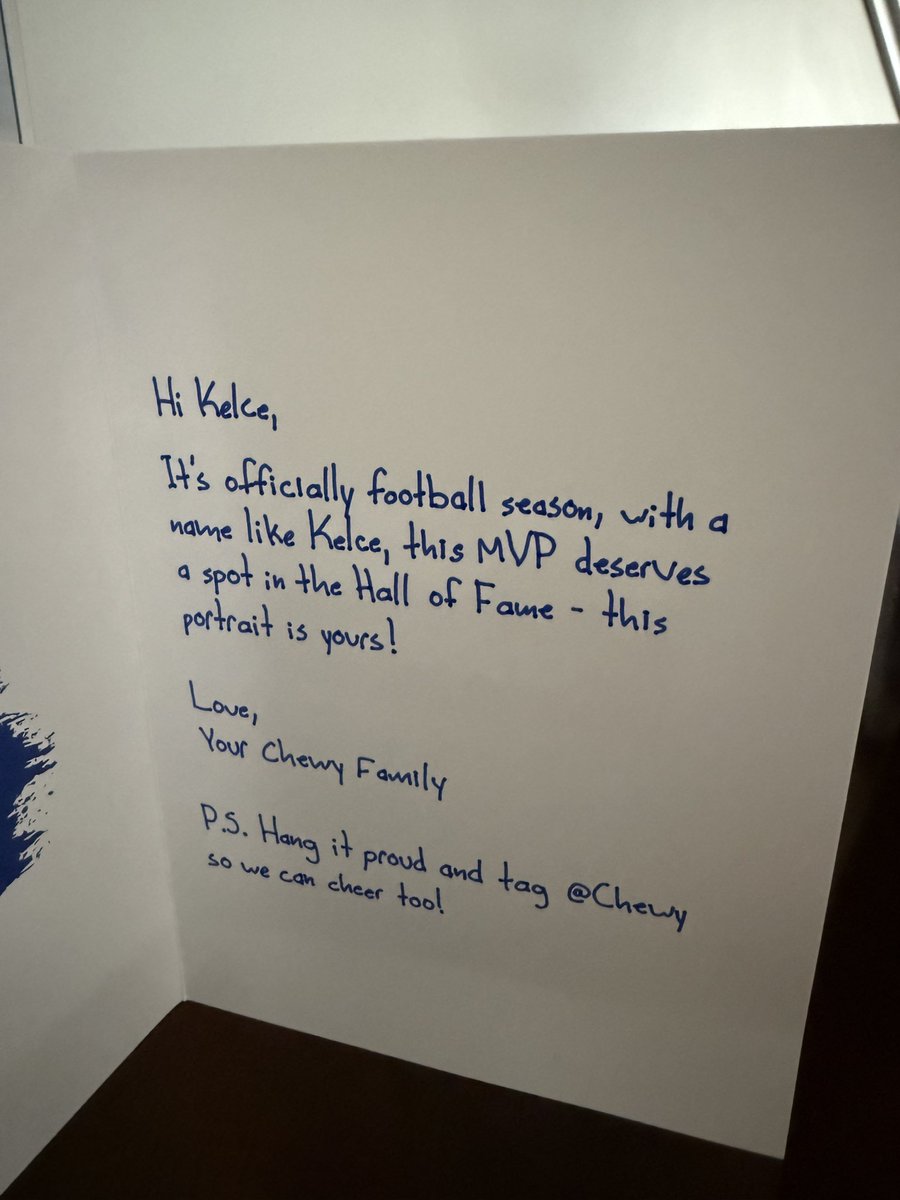 Hi Kelce,
It's officially football season, with a
name like Kelce, this MVP deserves
a spot in the Hall of Fame - this
portrait is yours!
Love,
Your Chewy Family
P.S. Hang it proud and tag @Chewy
so we can cheer too!